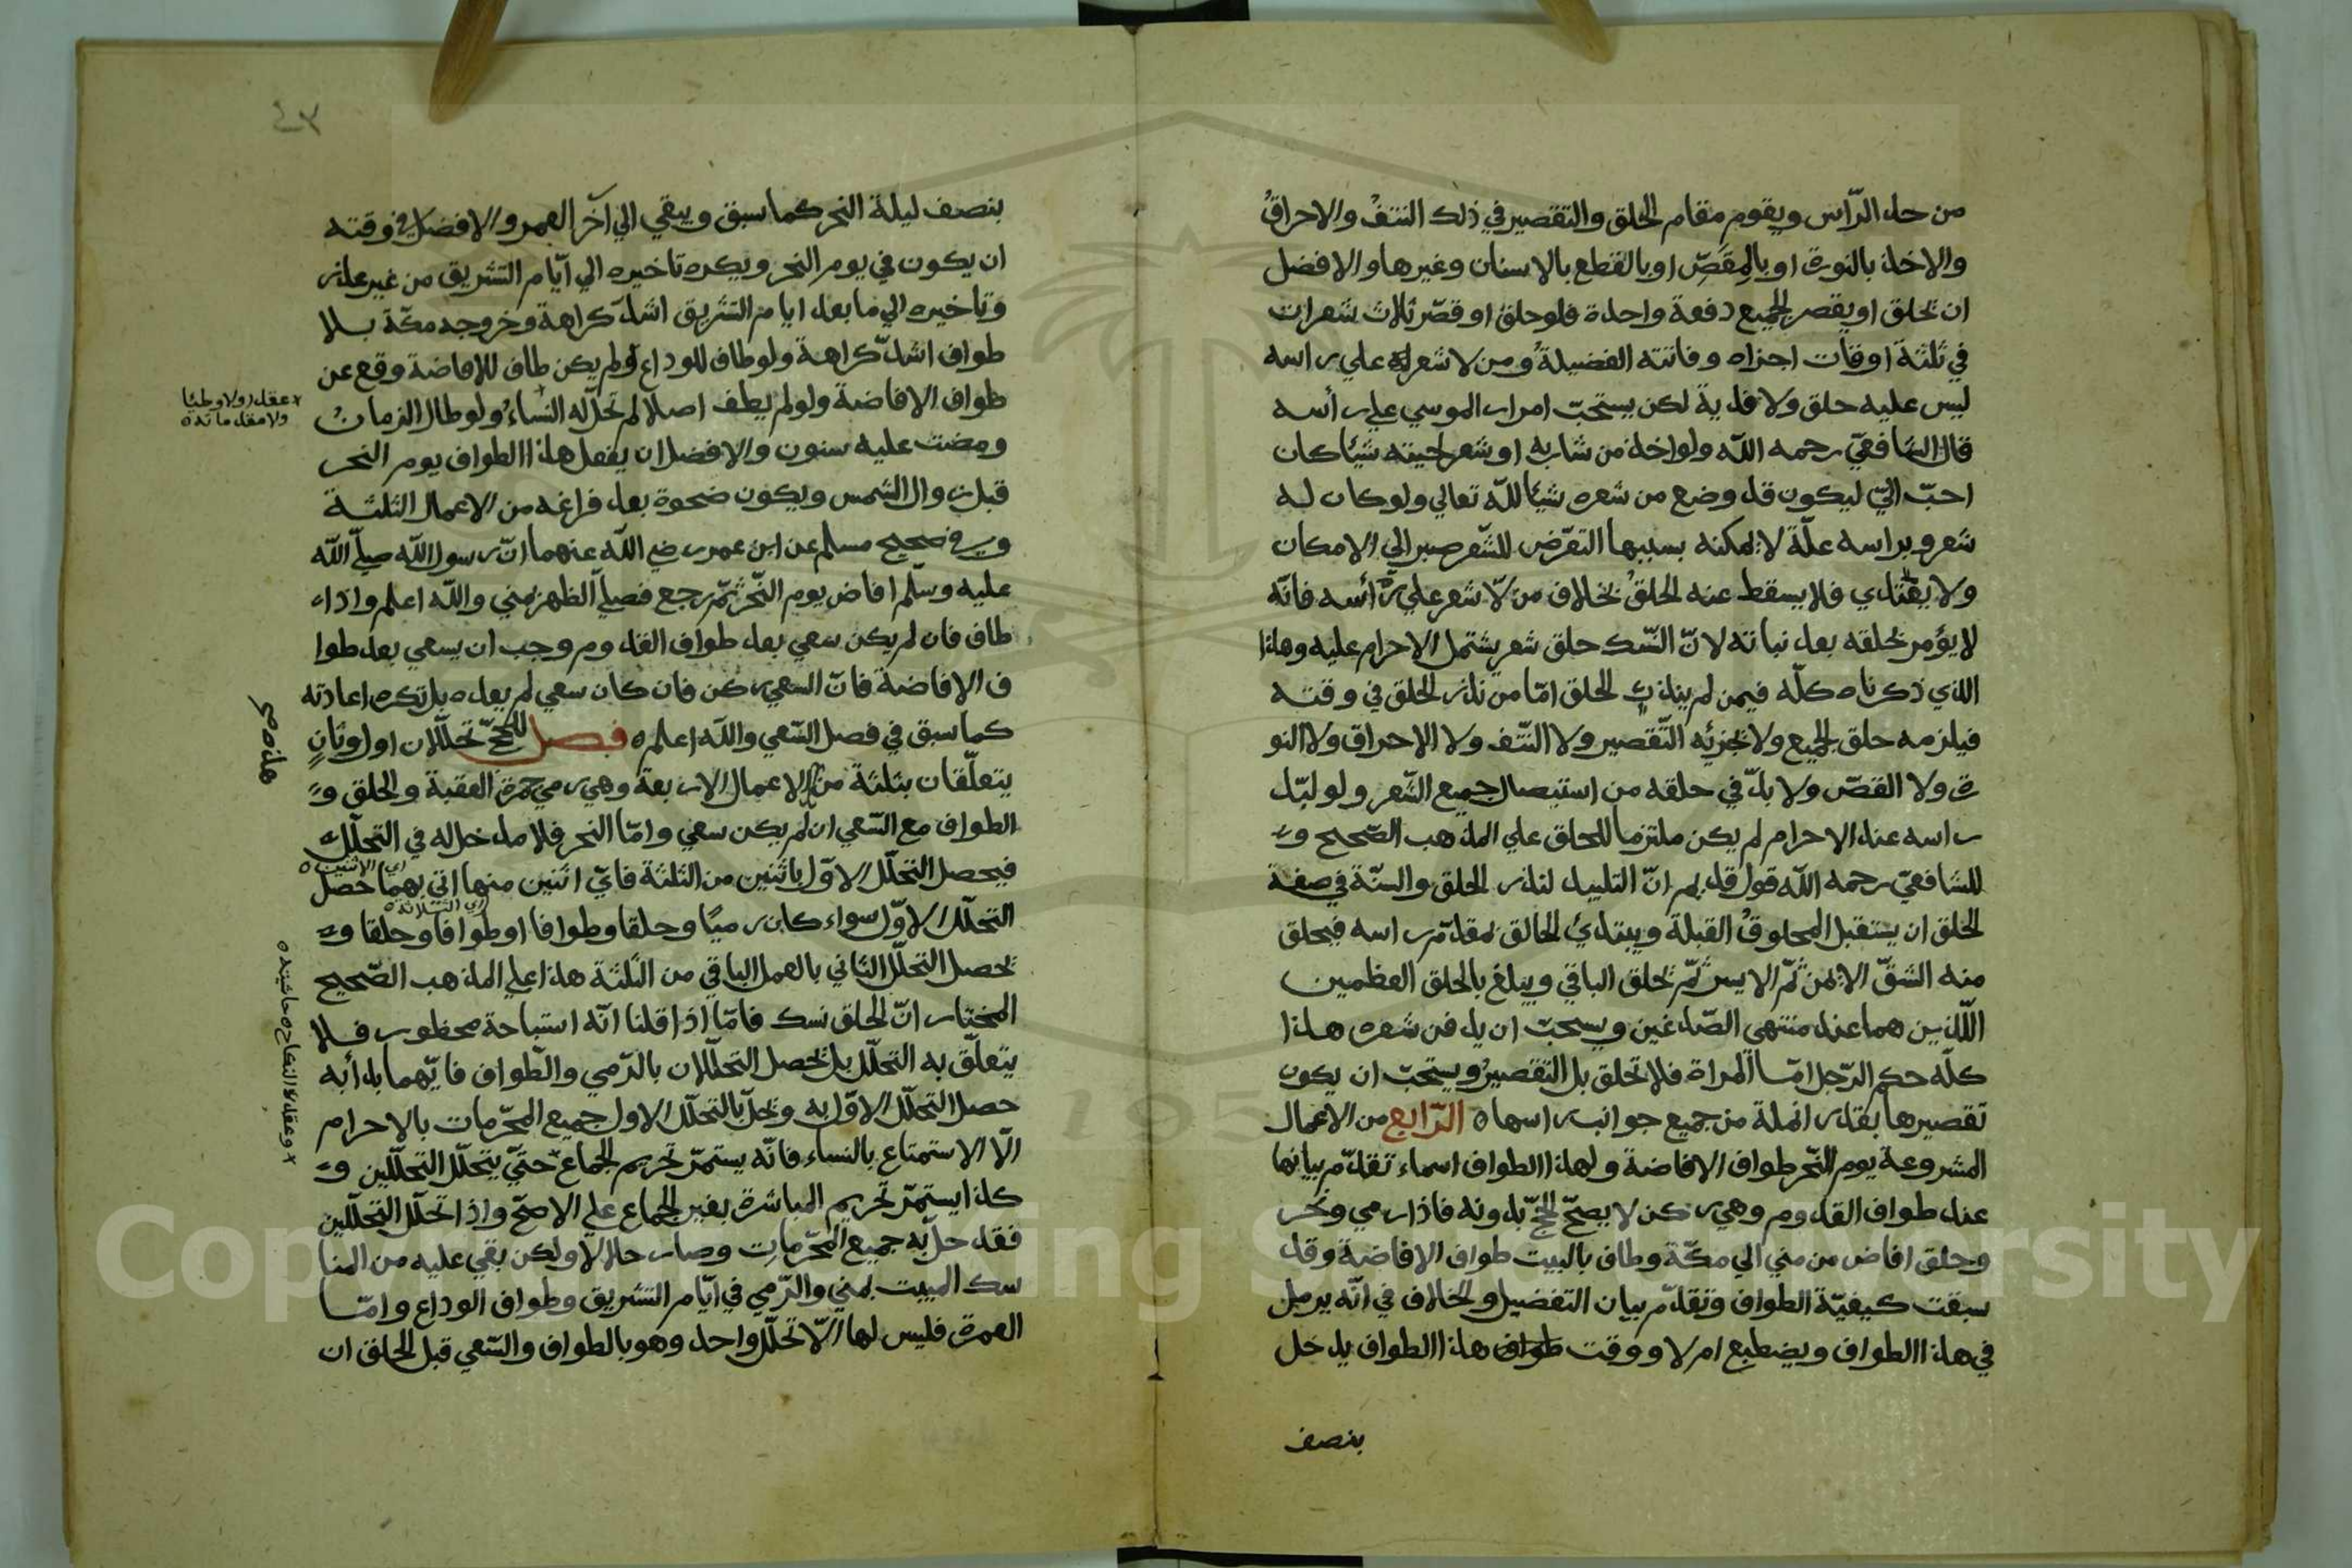 من حد الرّاس ويقوم مقام الحلق والتقصير في ذلك النتفُ والاحراقُ
والاخذ بالنورة او بالمِقَصِّ او بالقطع بالاسنان وغيرها والافضل
ان يحلق او يقصر الجميع دفعة واحدة فلو حلق او قصّر ثلاث شعرات
في ثلثة اوقات اجزاه وفاتته الفضيلةُ ومن لا شعر له علي راسه
ليس عليه حلق ولا فدية لكن يستحبّ امرار الموسي علي رأسه
قال الشافعيّ رحمه الله ولو اخذ من شاربه او شعر لحيته شيئا كان
احبّ اليّ ليكون قد وضع من شعره شيئا لله تعالي ولو كان له
شعر وبراسه علّة لا يمكنه بسببها التعرّض للشّعر صبر الي الامكان
ولا يفتدي فلا يسقط عنه الحلقُ بخلاف من لّا شعر علي رأسه فانّه
لا يؤمر بحلقه بعد نباته لانّ النّسك حلق شعر يشتمل الاحرام عليه وهذا
الذي ذكرناه كلّه فيمن لم ينذر الحلق امّا من نذر الحلق في وقته
فيلزمه حلق الجميع ولا يجزئه التّقصير ولا النّتف ولا الاحراق ولا النو
رة ولا القصّ ولا بدّ في حلقه من استيصال جميع الشّعر ولو لبّد
راسه عند الاحرام لم يكن ملتزما للحلق علي المذهب الصّحيح و
للشافعيّ رحمه الله قول قديم انّ التلبيد لنذر الحلق والسنّة في صفة
الحلق ان يستقبل المحلوقُ القبلة ويبتدئ الحالق بمقدّم راسه فيحلق
منه الشقّ الايمن ثمّ الايسر ثمّ يحلق الباقي ويبلغ بالحلق العظمين
اللّذين هما عند منتهي الصّدغين ويستحبّ ان يدفن شعره هذا
كلّه حكم الرّجل امّا المراة فلا تحلق بل التقصير ويستحبّ ان يكون
تقصيرها بقدر انملة من جميع جوانب راسها ه الرّابع من الاعمال
المشروعة يوم النّحر طواف الافاضة ولهذا الطواف اسماء تقدّم بيانها
عند طواف القدوم وهي ركن لا يصحّ الحجّ بدونه فاذا رمي ونحر
وحلق افاض من مني الي مكّة وطاف بالبيت طواف الافاضة وقد
سبقت كيفيّة الطواف وتقدّم بيان التفضيل والخلاف في انّه يرمل
في هذا الطواف ويضطبع ام لا ووقت طواف هذا الطواف يدخل
بنصف
٤٣
بنصف ليلة النحر كما سبق ويبقي الي آخر العمر والافضل في وقته
ان يكون في يوم النحر ويكره تاخيره الي ايّام التشريق من غير عذر
وتاخيره الي ما بعد ايام التشريق اشدّ كراهة وخروجه مكّة بلا
طواف اشدّ كراهة ولو طاف للوداع ولم يكن طاف للافاضة وقع عن
طواف الافاضة ولو لم يطف اصلا لم تحلّ له النساءُ ولو طال الزمانُ
ومضت عليه سنون والافضل ان يفعل هذا الطواف يوم النحر
قبل زوال الشمس ويكون ضحوة بعد فراغه من الاعمال الثلثة
وفي صحيح مسلم عن ابن عمر رضي الله عنهما انّ رسول الله صلّي الله
عليه وسلّم افاض يوم النّحر ثمّ رجع فصلّي الظهر بمني والله اعلم واذا
طاف فان لم يكن سعي بعد طواف القدوم وجب ان يسعي بعد طوا
ف الافاضة فانّ السعي ركن فان كان سعي لم يعده بل تكره اعادته
كما سبق في فصل السّعي والله اعلم ه فصل للحجّ تحلّلان اول وثانٍ
يتعلّقان بثلثة من الاعمال الاربعة وهي رمي جمرة العقبة والحلق و
الطواف مع السّعي ان لم يكن سعي وامّا النحر فلا مدخل له في التحلّل
فيحصل التحلّل الاوّل باثنين من الثلثة فايّ اثنين منها اتي بهما حصل
التحلّل الاوّل سواء كان رميًا وحلقا وطوافا او طوافا وحلقا و
يحصل التحلّل الثاني بالعمل الباقي من الثلثة هذا علي المذهب الصّحيح
المختار انّ الحلق نسك فامّا اذا قلنا انّه استباحة محظور فلا
يتعلّق به التحلّل بل يحصل التحلّلان بالرّمي والطّواف فايّهما بدأ به
حصل التحلّل الاوّل به ويحلّ بالتحلّل الاول جميع المحرّمات بالاحرام
الّا الاستمتاع بالنساء فانّه يستمرّ تحريم الجماع حتيّ يتحلّل التحلّلين و
كذا يستمرّ تحريم المباشرة بغير الجماع علي الاصحّ واذا تحلّل التحلّلين
فقد حلّ به جميع المحرّمات وصار حلالا ولكن بقي عليه من المنا
سك المبيت بمني والرّمي في ايّام التشريق وطواف الوداع وامّا
العمرة فليس لها الّا تحلّل واحد وهو بالطواف والسّعي قبل الحلق ان
عقدا ولا وطئا
ولا مقدماته ه
اي الاثنين ه
اي الثلاثة ه
وعقد النكاح ه حاشيه ه
Copyright © King Saud University
195